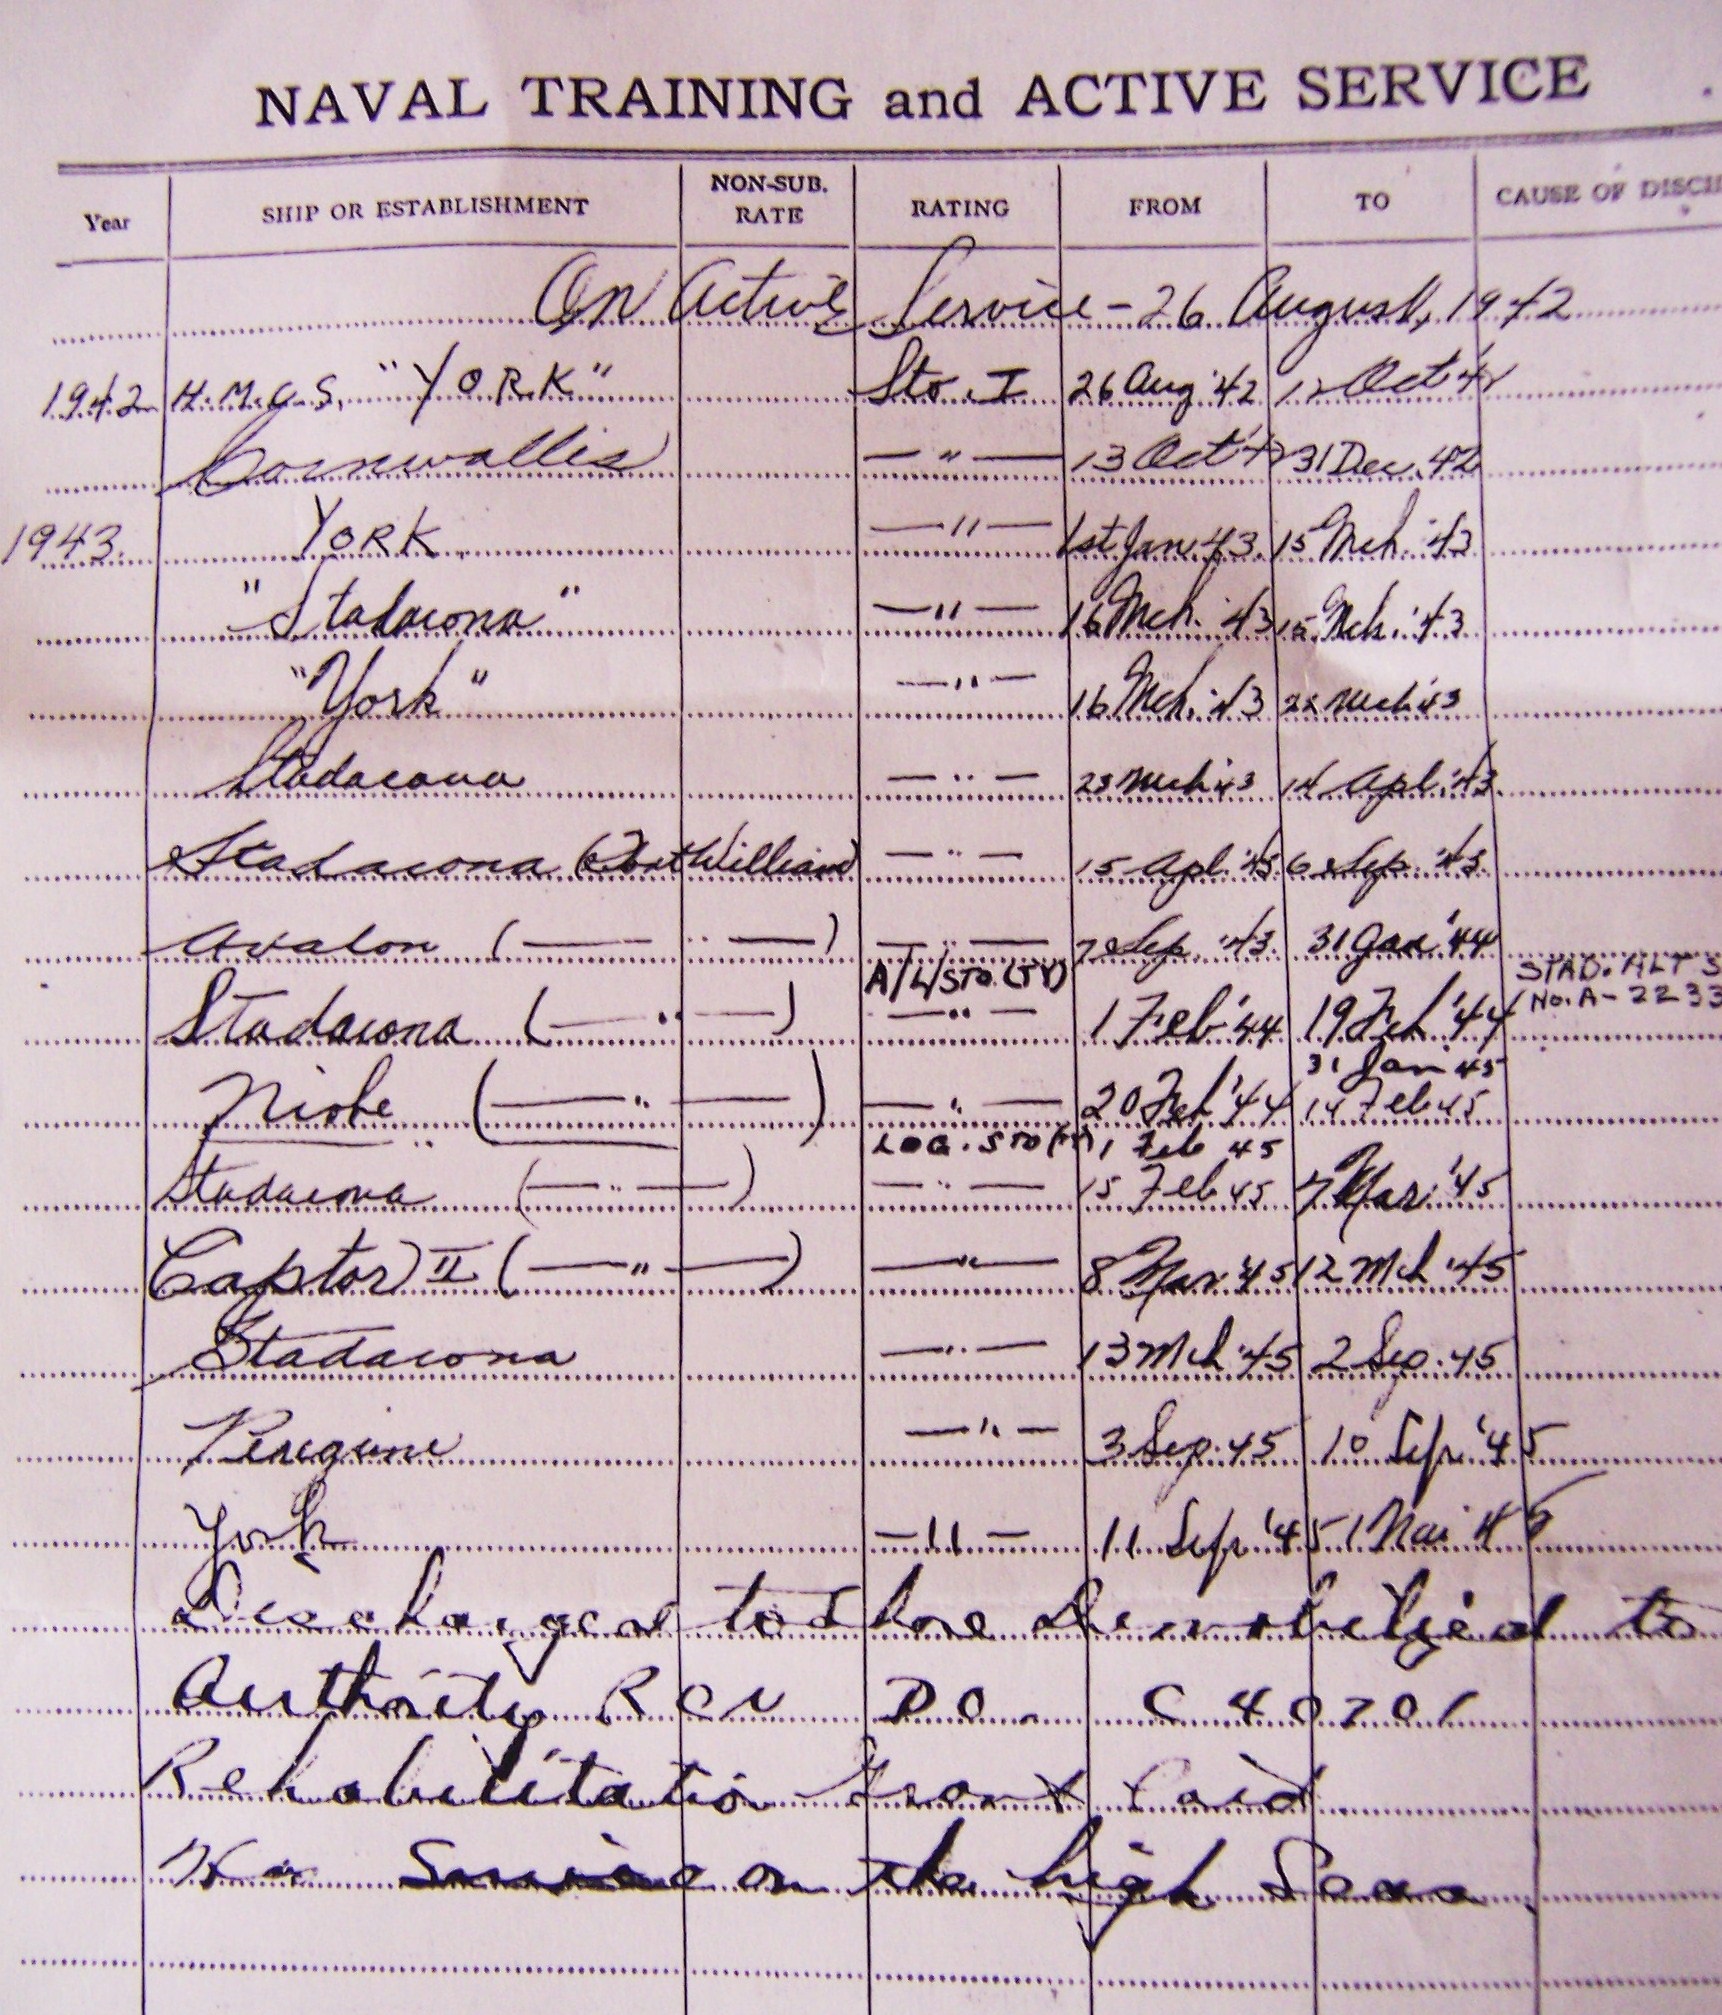 NAVAL TRAINING and ACTIVE SERVICE
Year SHIP OR ESTABLISHMENT NON-SUB. RATE RATING FROM TO CAUSE OF DISCH
On Active Service - 26 August, 1942
1942 H.M.C.S. "YORK" Sto. I 26 Aug '42 12 Oct 42
Cornwallis — " — 13 Oct '42 31 Dec. 42
1943. YORK. — " — 1st Jan. 43. 15 Mch. '43
"Stadacona" — " — 16 Mch. '43 15. Mch. '43
"York" — " — 16 Mch. '43 22 Mch '43
Stadacona — " — 23 Mch '43 14 Apl. '43.
Stadacona (Fort William) — " — 15 Apl. '43 6 Sep. '43.
Avalon ( — " — ) — " — 7 Sep. '43. 31 Jan '44
A/L/STO. (TY) STAD. ALT S
Stadacona ( — " — ) — " — 1 Feb '44 19 Feb '44 No. A-2233
31 Jan 45
Niobe ( — " — ) — " — 20 Feb '44 14 Feb 45
" LDG. STO (TY) 1 Feb 45
Stadacona ( — " — ) — " — 15 Feb 45 7 Mar. '45
Captor II ( — " — ) — " — 8 Mar. '45 12 Mch '45
Stadacona — " — 13 Mch '45 2 Sep. 45
Peregrine — " — 3 Sep. 45 10 Sept. '45
York — " — 11 Sept '45 1
Discharged to Shore Demobilized to
Authority RCN DO. C 40701
Rehabilitation Grant Paid
Service on the high Seas.